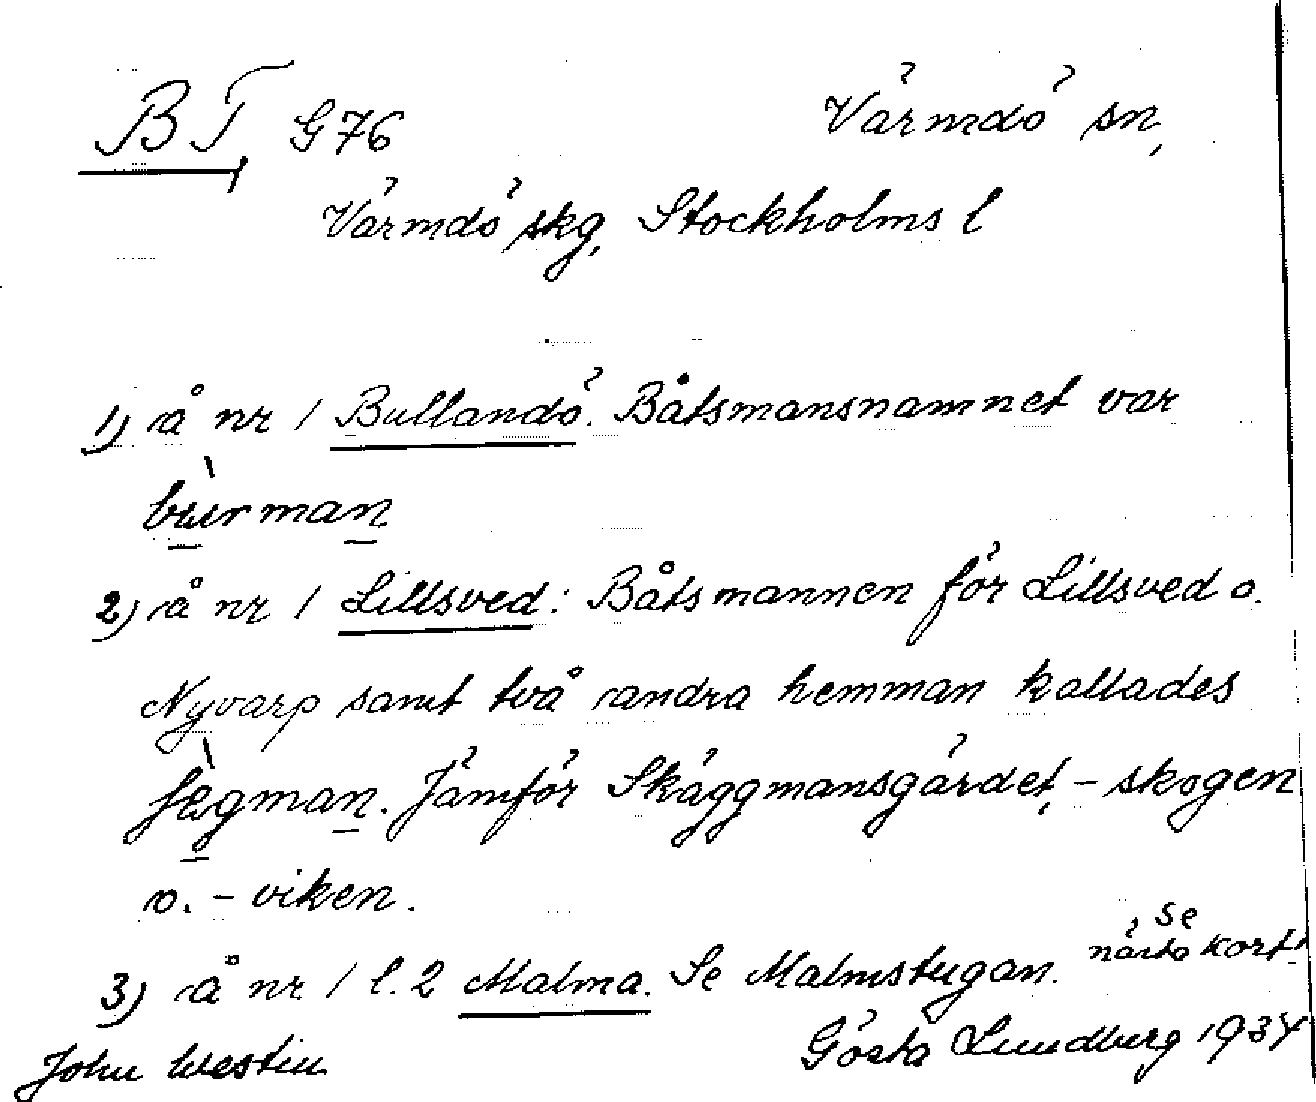 BT, G76 Värmdö sn,
Värmdö skg, Stockholms l
1) å nr 1 Bullandö. Båtsmansnamnet var
bùrman
2) å nr 1 Lillsved: Båtsmannen för Lillsved o.
Nyvarp samt två andra hemman kallades
Jämför Skäggmansgärdet, - skogen
o. - viken.
3) å nr 1 l. 2 Malma. Se Malmstugan. Se
nästa kort
John Westin Gösta Lundberg 1934